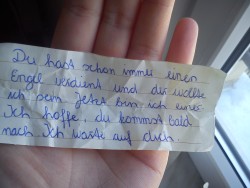 Du hast schon immer einen
Engel verdient und der wollte
ich sein. Jetzt bin ich einer.
Ich hoffe, du kommst bald
nach. Ich warte auf dich